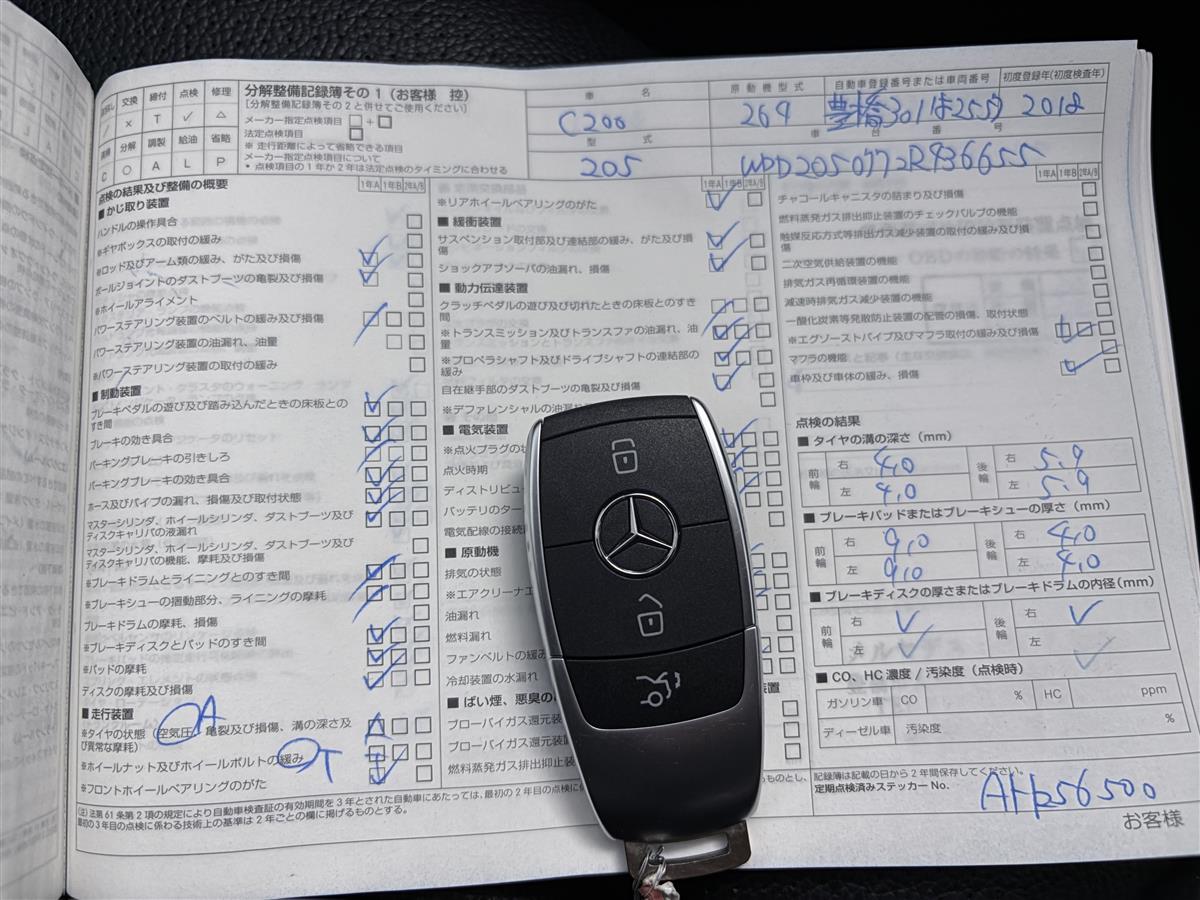 交換 締付 点検 修理
× T ✓ △
分解 調製 給油 省略
C ○ A L P
分解整備記録簿その1(お客様 控)
[分解整備記録簿その2と併せてご使用ください]
メーカー指定点検項目 □+□
法定点検項目 □
※走行距離によって省略できる項目
メーカー指定点検項目について
・点検項目の1年か2年は法定点検のタイミングに合わせる
車 名
C200
型 式
205
原動機型式
264
自動車登録番号または車両番号
初度登録年(初度検査年)
2018
車 台 番 号
点検の結果及び整備の概要
■かじ取り装置
ハンドルの操作具合
※ギヤボックスの取付の緩み
※ロッド及びアーム類の緩み、がた及び損傷
ボールジョイントのダストブーツの亀裂及び損傷
※ホイールアライメント
パワーステアリング装置のベルトの緩み及び損傷
パワーステアリング装置の油漏れ、油量
※パワーステアリング装置の取付の緩み
■制動装置
ブレーキペダルの遊び及び踏み込んだときの床板とのすき間
ブレーキの効き具合
パーキングブレーキの引きしろ
パーキングブレーキの効き具合
ホース及びパイプの漏れ、損傷及び取付状態
マスターシリンダ、ホイールシリンダ、ダストブーツ及び
ディスクキャリパの液漏れ
マスターシリンダ、ホイールシリンダ、ダストブーツ及び
ディスクキャリパの機能、摩耗及び損傷
※ブレーキドラムとライニングとのすき間
※ブレーキシューの摺動部分、ライニングの摩耗
ブレーキドラムの摩耗、損傷
※ブレーキディスクとパッドのすき間
※パッドの摩耗
ディスクの摩耗及び損傷
■走行装置
※タイヤの状態(空気圧、亀裂及び損傷、溝の深さ及
び異常な摩耗)
A
※ホイールナット及びホイールボルトの緩み
T
※フロントホイールベアリングのがた
1年A 1年B 2年A/B
※リアホイールベアリングのがた
■緩衝装置
サスペンション取付部及び連結部の緩み、がた及び損
傷
ショックアブソーバの油漏れ、損傷
■動力伝達装置
クラッチペダルの遊び及び切れたときの床板とのすき
間
※トランスミッション及びトランスファの油漏れ、油
量
※プロペラシャフト及びドライブシャフトの連結部の
緩み
自在継手部のダストブーツの亀裂及び損傷
※デファレンシャルの油漏
■電気装置
※点火プラグの状
点火時期
ディストリビュー
バッテリのター
電気配線の接続
■原動機
排気の状態
※エアクリーナエ
油漏れ
燃料漏れ
ファンベルトの緩み
冷却装置の水漏れ
■ばい煙、悪臭の
装置
ブローバイガス還元装
ブローバイガス還元装
燃料蒸発ガス排出抑止装
1年A 1年B 2年A/B
チャコールキャニスタの詰まり及び損傷
燃料蒸発ガス排出抑止装置のチェックバルブの機能
触媒反応方式等排出ガス減少装置の取付の緩み及び損
傷
二次空気供給装置の機能
排気ガス再循環装置の機能
減速時排気ガス減少装置の機能
一酸化炭素等発散防止装置の配管の損傷、取付状態
※エグゾーストパイプ及びマフラ取付の緩み及び損傷
マフラの機能
車枠及び車体の緩み、損傷
点検の結果
■タイヤの溝の深さ(mm)
前輪 右 4.0 後輪 右 5.9
左 4.0 左 5.9
■ブレーキパッドまたはブレーキシューの厚さ(mm)
前輪 右 9.0 後輪 右 4.0
左 9.0 左 4.0
■ブレーキディスクの厚さまたはブレーキドラムの内径(mm)
前輪 右 ✓ 後輪 右 ✓
左 ✓ 左 ✓
■CO、HC濃度/汚染度(点検時)
ガソリン車 CO % HC ppm
ディーゼル車 汚染度 %
(注)法第61条第2項の規定により自動車検査証の有効期間を3年とされた自動車にあたっては、最初の2年目の点検に係
最初の3年目の点検に係わる技術上の基準は2年ごとの欄に掲げるものとする。
るものとし、
記録簿は記載の日から2年間保存してください。
定期点検済みステッカー No.
お客様